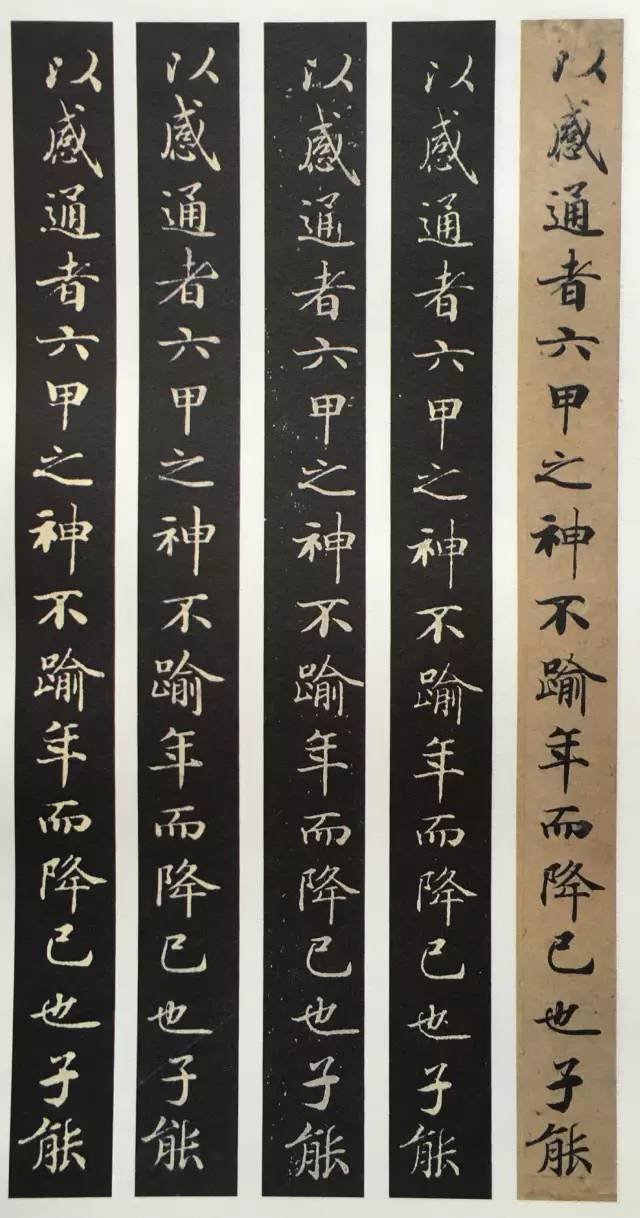 以感通者六甲之神不踰年而降已也子能
以感通者六甲之神不踰年而降已也子能
以感通者六甲之神不踰年而降已也子能
以感通者六甲之神不踰年而降已也子能
以感通者六甲之神不踰年而降已也子能